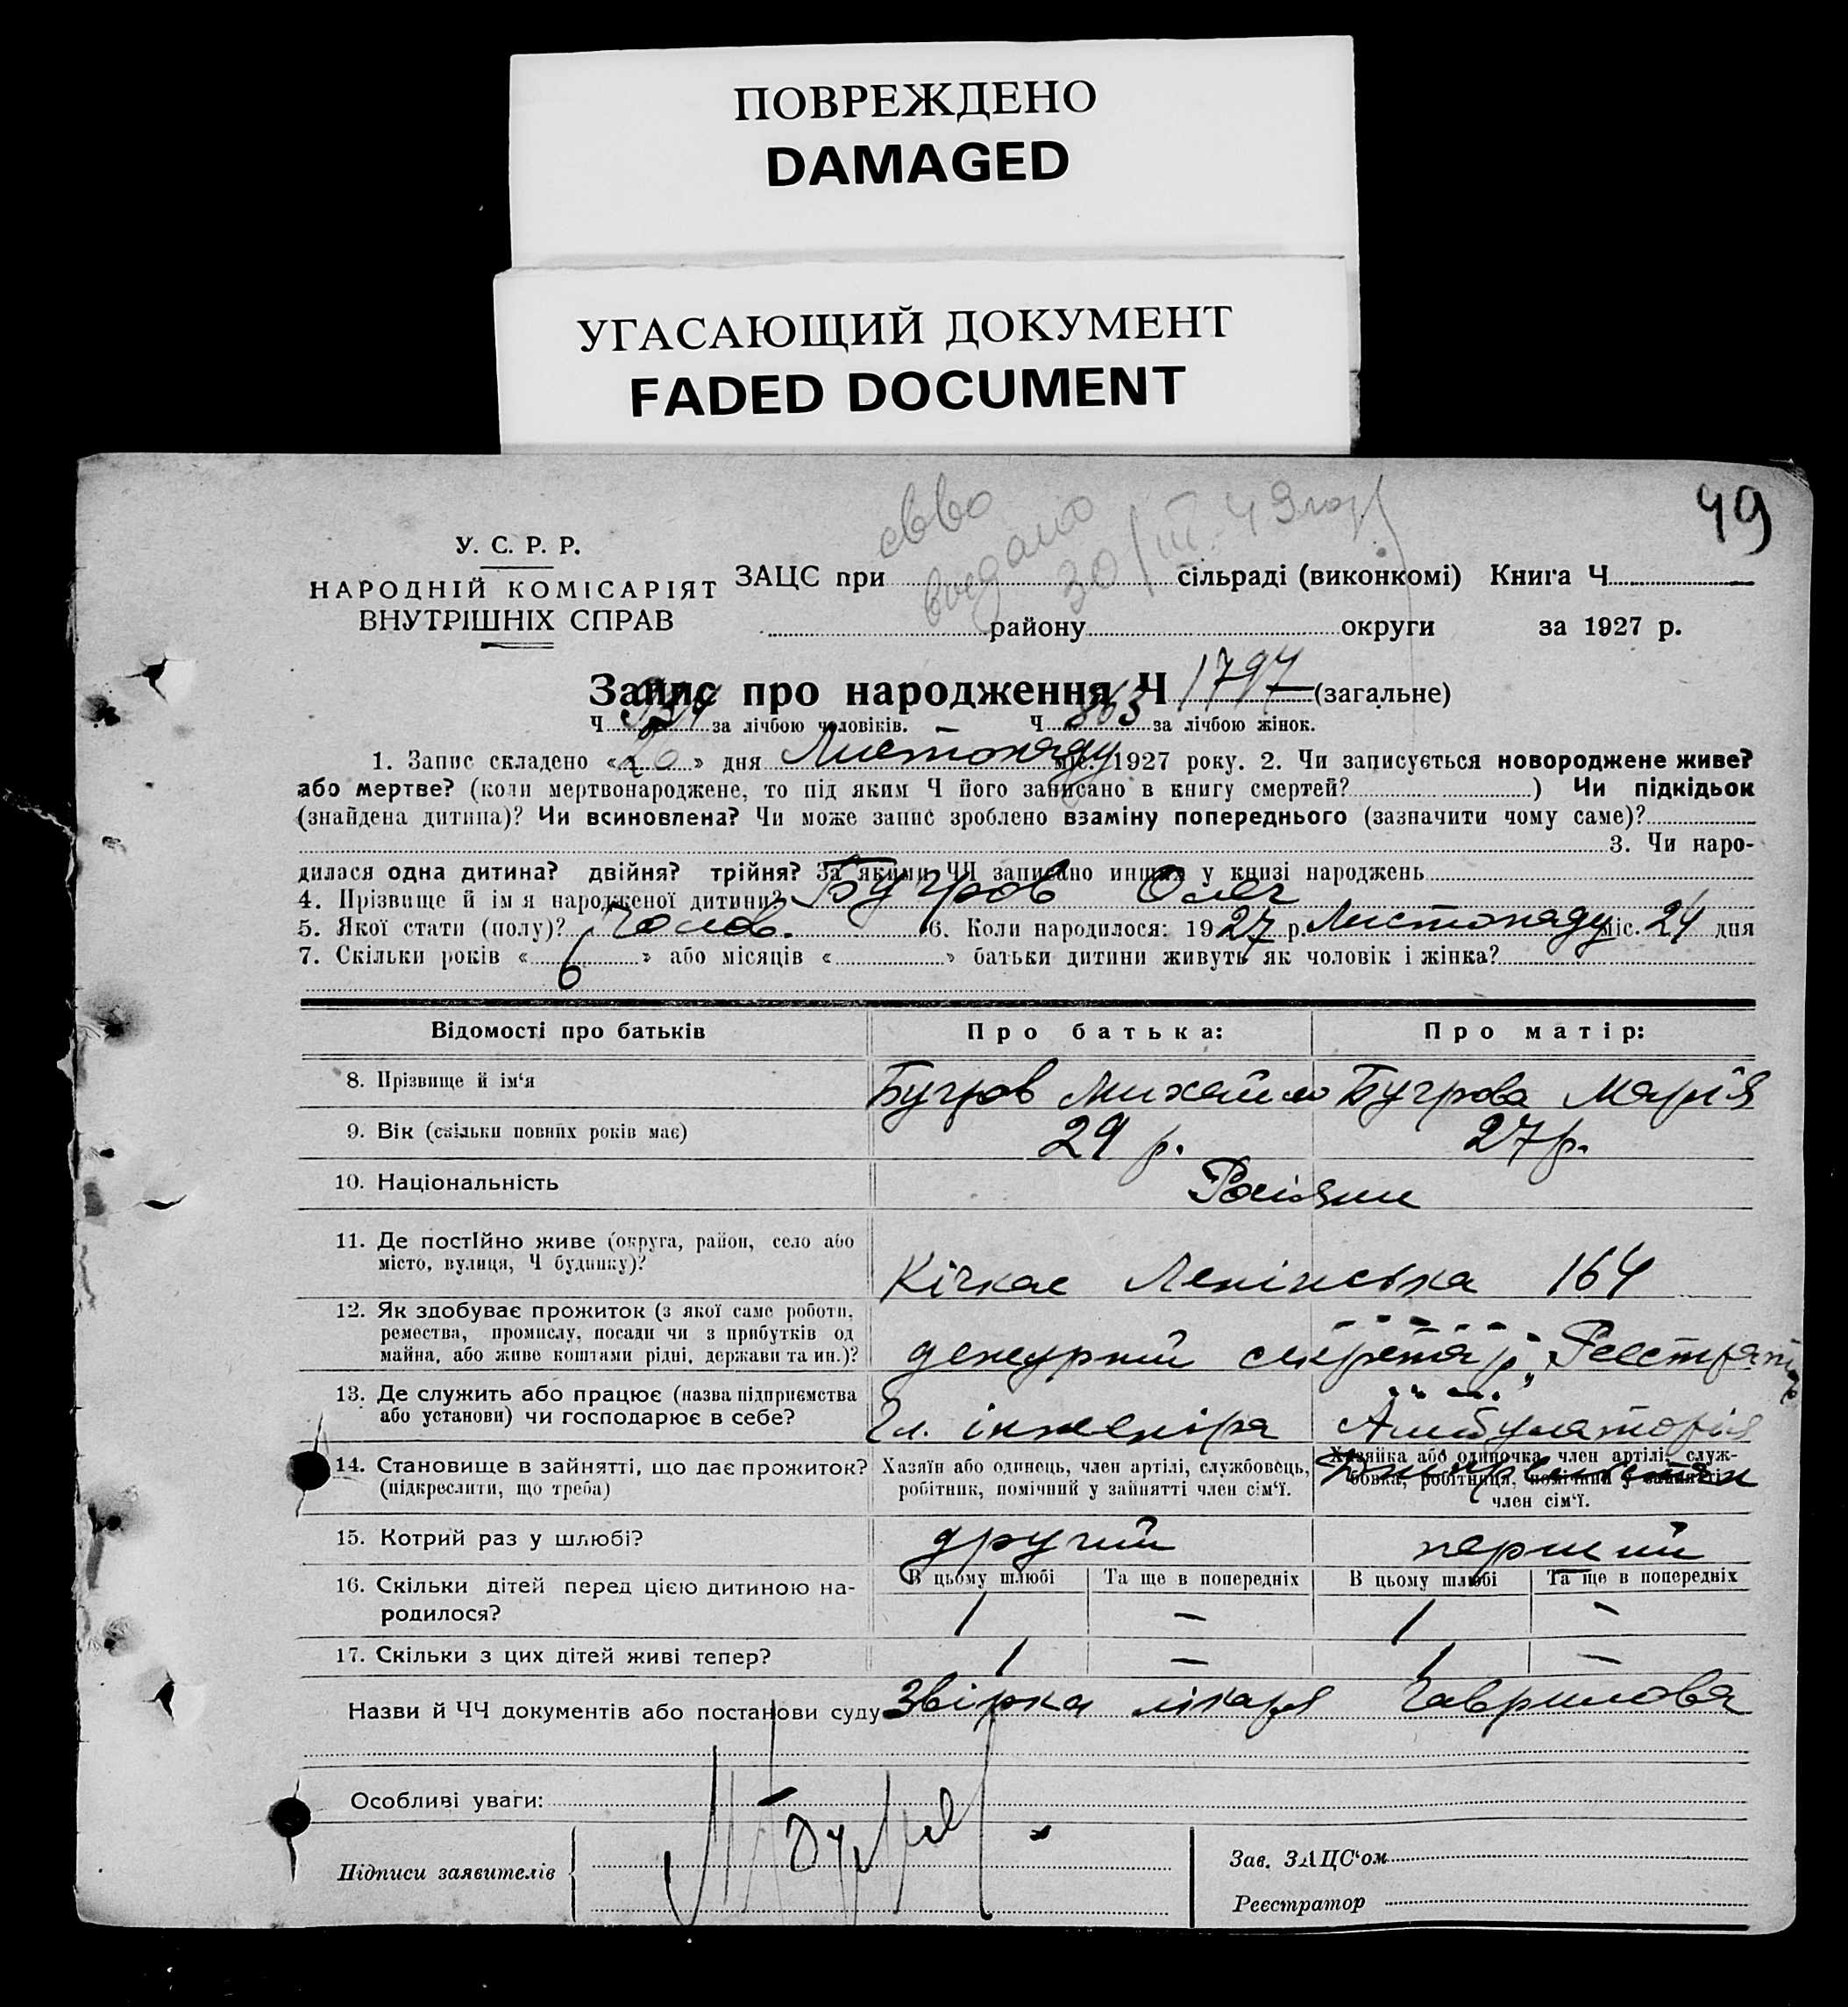 ПОВРЕЖДЕНО
DAMAGED
УГАСАЮЩИЙ ДОКУМЕНТ
FADED DOCUMENT
49
св-во
выдано
30/III. 49 год
У. С. Р. Р.
НАРОДНІЙ КОМІСАРІЯТ
ВНУТРІШНІХ СПРАВ
ЗАЦС при сільраді (виконкомі) Книга Ч
району округи за 1927 р.
Запис про народження Ч 1797 (загальне)
Ч 934 за лічбою чоловіків. Ч 863 за лічбою жінок.
1. Запис складено « 26 » дня Листопаду міс. 1927 року. 2. Чи записується новороджене живе?
або мертве? (коли мертвонароджене, то під яким Ч його записано в книгу смертей? ) Чи підкідьок
(знайдена дитина)? Чи всиновлена? Чи може запис зроблено взаміну попереднього (зазначити чому саме)?
3. Чи наро-
дилася одна дитина? двійня? трійня? За якими ЧЧ записано инших у книзі народжень
4. Прізвище й ім я народженої дитини? Бугров Олег
5. Якої стати (полу)? Чолов. 6. Коли народилося: 1927 р. Листопаду міс. 24 дня
7. Скільки років « 6 » або місяців « » батьки дитини живуть як чоловік і жінка?
Відомості про батьків Про батька: Про матір:
8. Прізвище й ім‘я Бугров Михайло Бугрова Марія
9. Вік (скільки повних років має) 29 р. 27 р.
10. Національність Росіяни
11. Де постійно живе (округа, район, село або
місто, вулиця, Ч будинку)? Кічкас Ленінська 164
12. Як здобуває прожиток (з якої саме роботи,
ремества, промислу, посади чи з прибутків од
майна, або живе коштами рідні, держави та ин.)? дежурний секретар Реєстратор
13. Де служить або працює (назва підприємства
або установи) чи господарює в себе? Гл. інженіра Амбулаторія
14. Становище в зайнятті, що дає прожиток?
(підкреслити, що треба)
Хазяїн або одинець, член артілі, службовець,
робітник, помічний у зайнятті член сім‘ї.
Хазяйка або одиночка, член артілі, служ-
бовка, робітниця, помічний у зайнятті
член сім‘ї.
15. Котрий раз у шлюбі? другий перший
16. Скільки дітей перед цією дитиною на-
родилося?
В цьому шлюбі Та ще в попередніх В цьому шлюбі Та ще в попередніх
1 — 1 —
17. Скільки з цих дітей живі тепер? 1 — 1 —
Назви й ЧЧ документів або постанови суду Звірка лікаря Гаврилова
Особливі уваги:
Підписи заявителів
Зав. ЗАЦС‘ом
Реєстратор